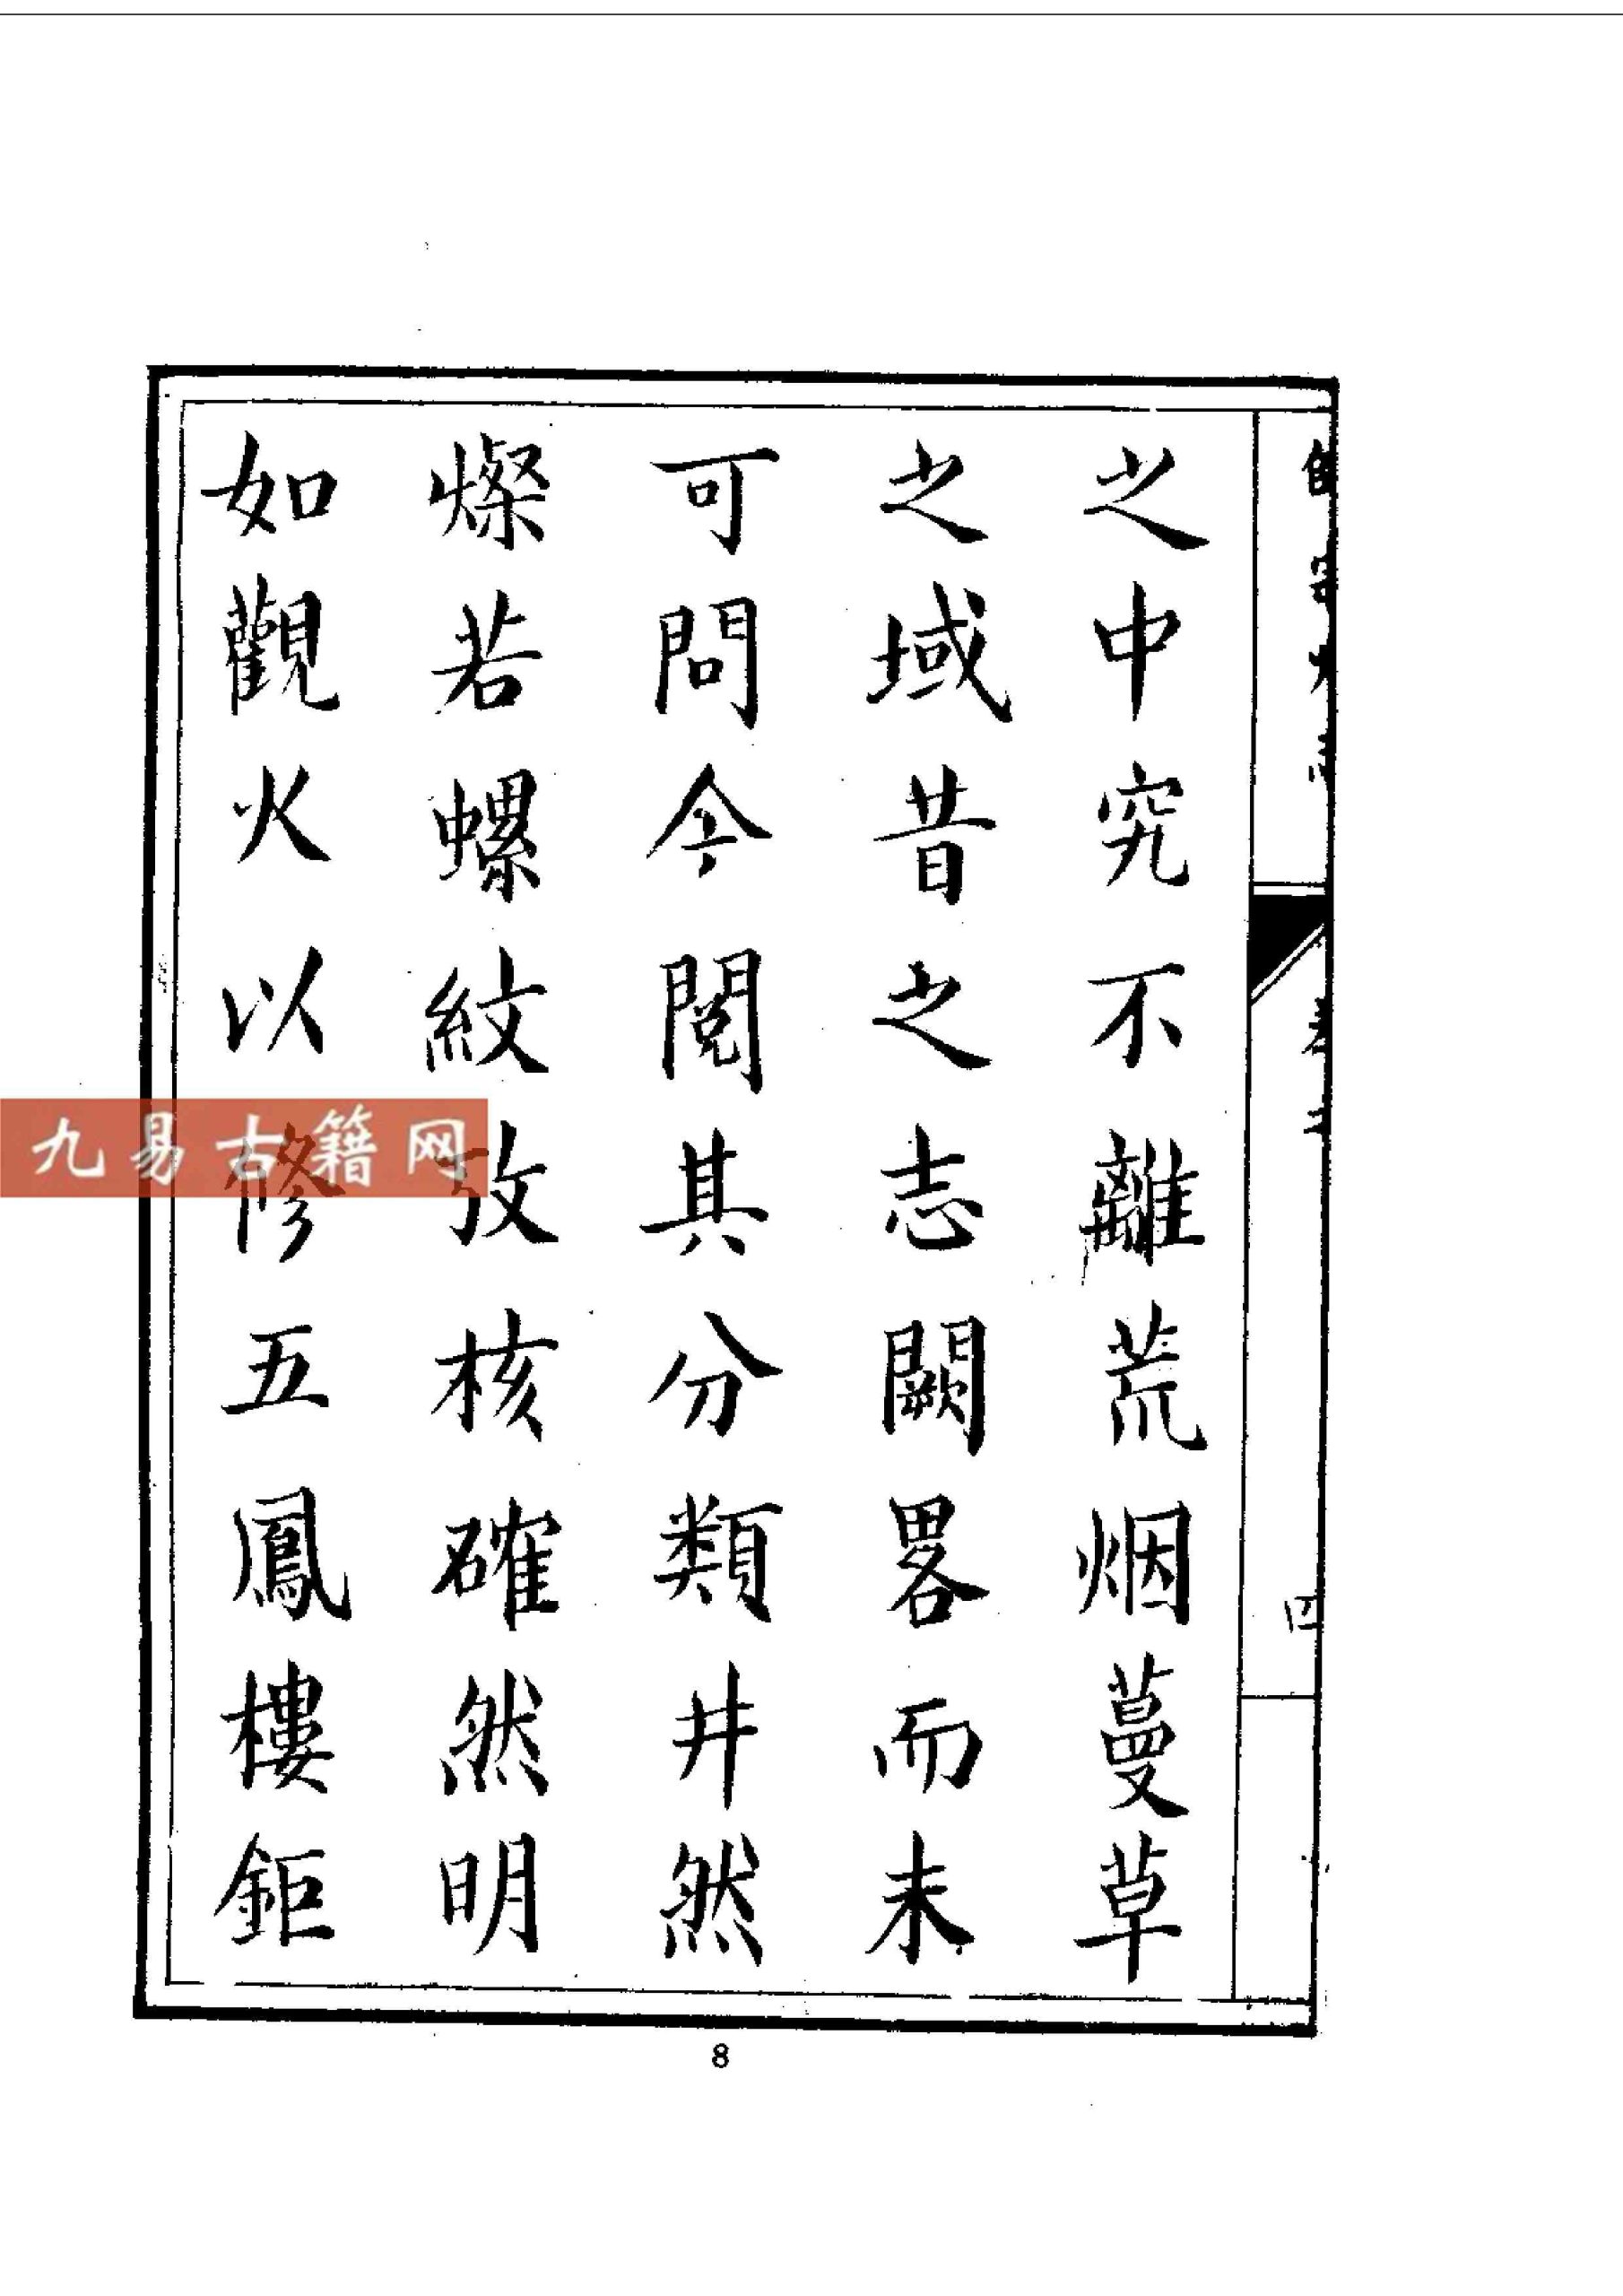 之中究不離荒烟蔓草
之域昔之志闕畧而未
可問今閱其分類井然
燦若螺紋攷核確然明
如觀火以修五鳳樓鉅
四
九易古籍网
8